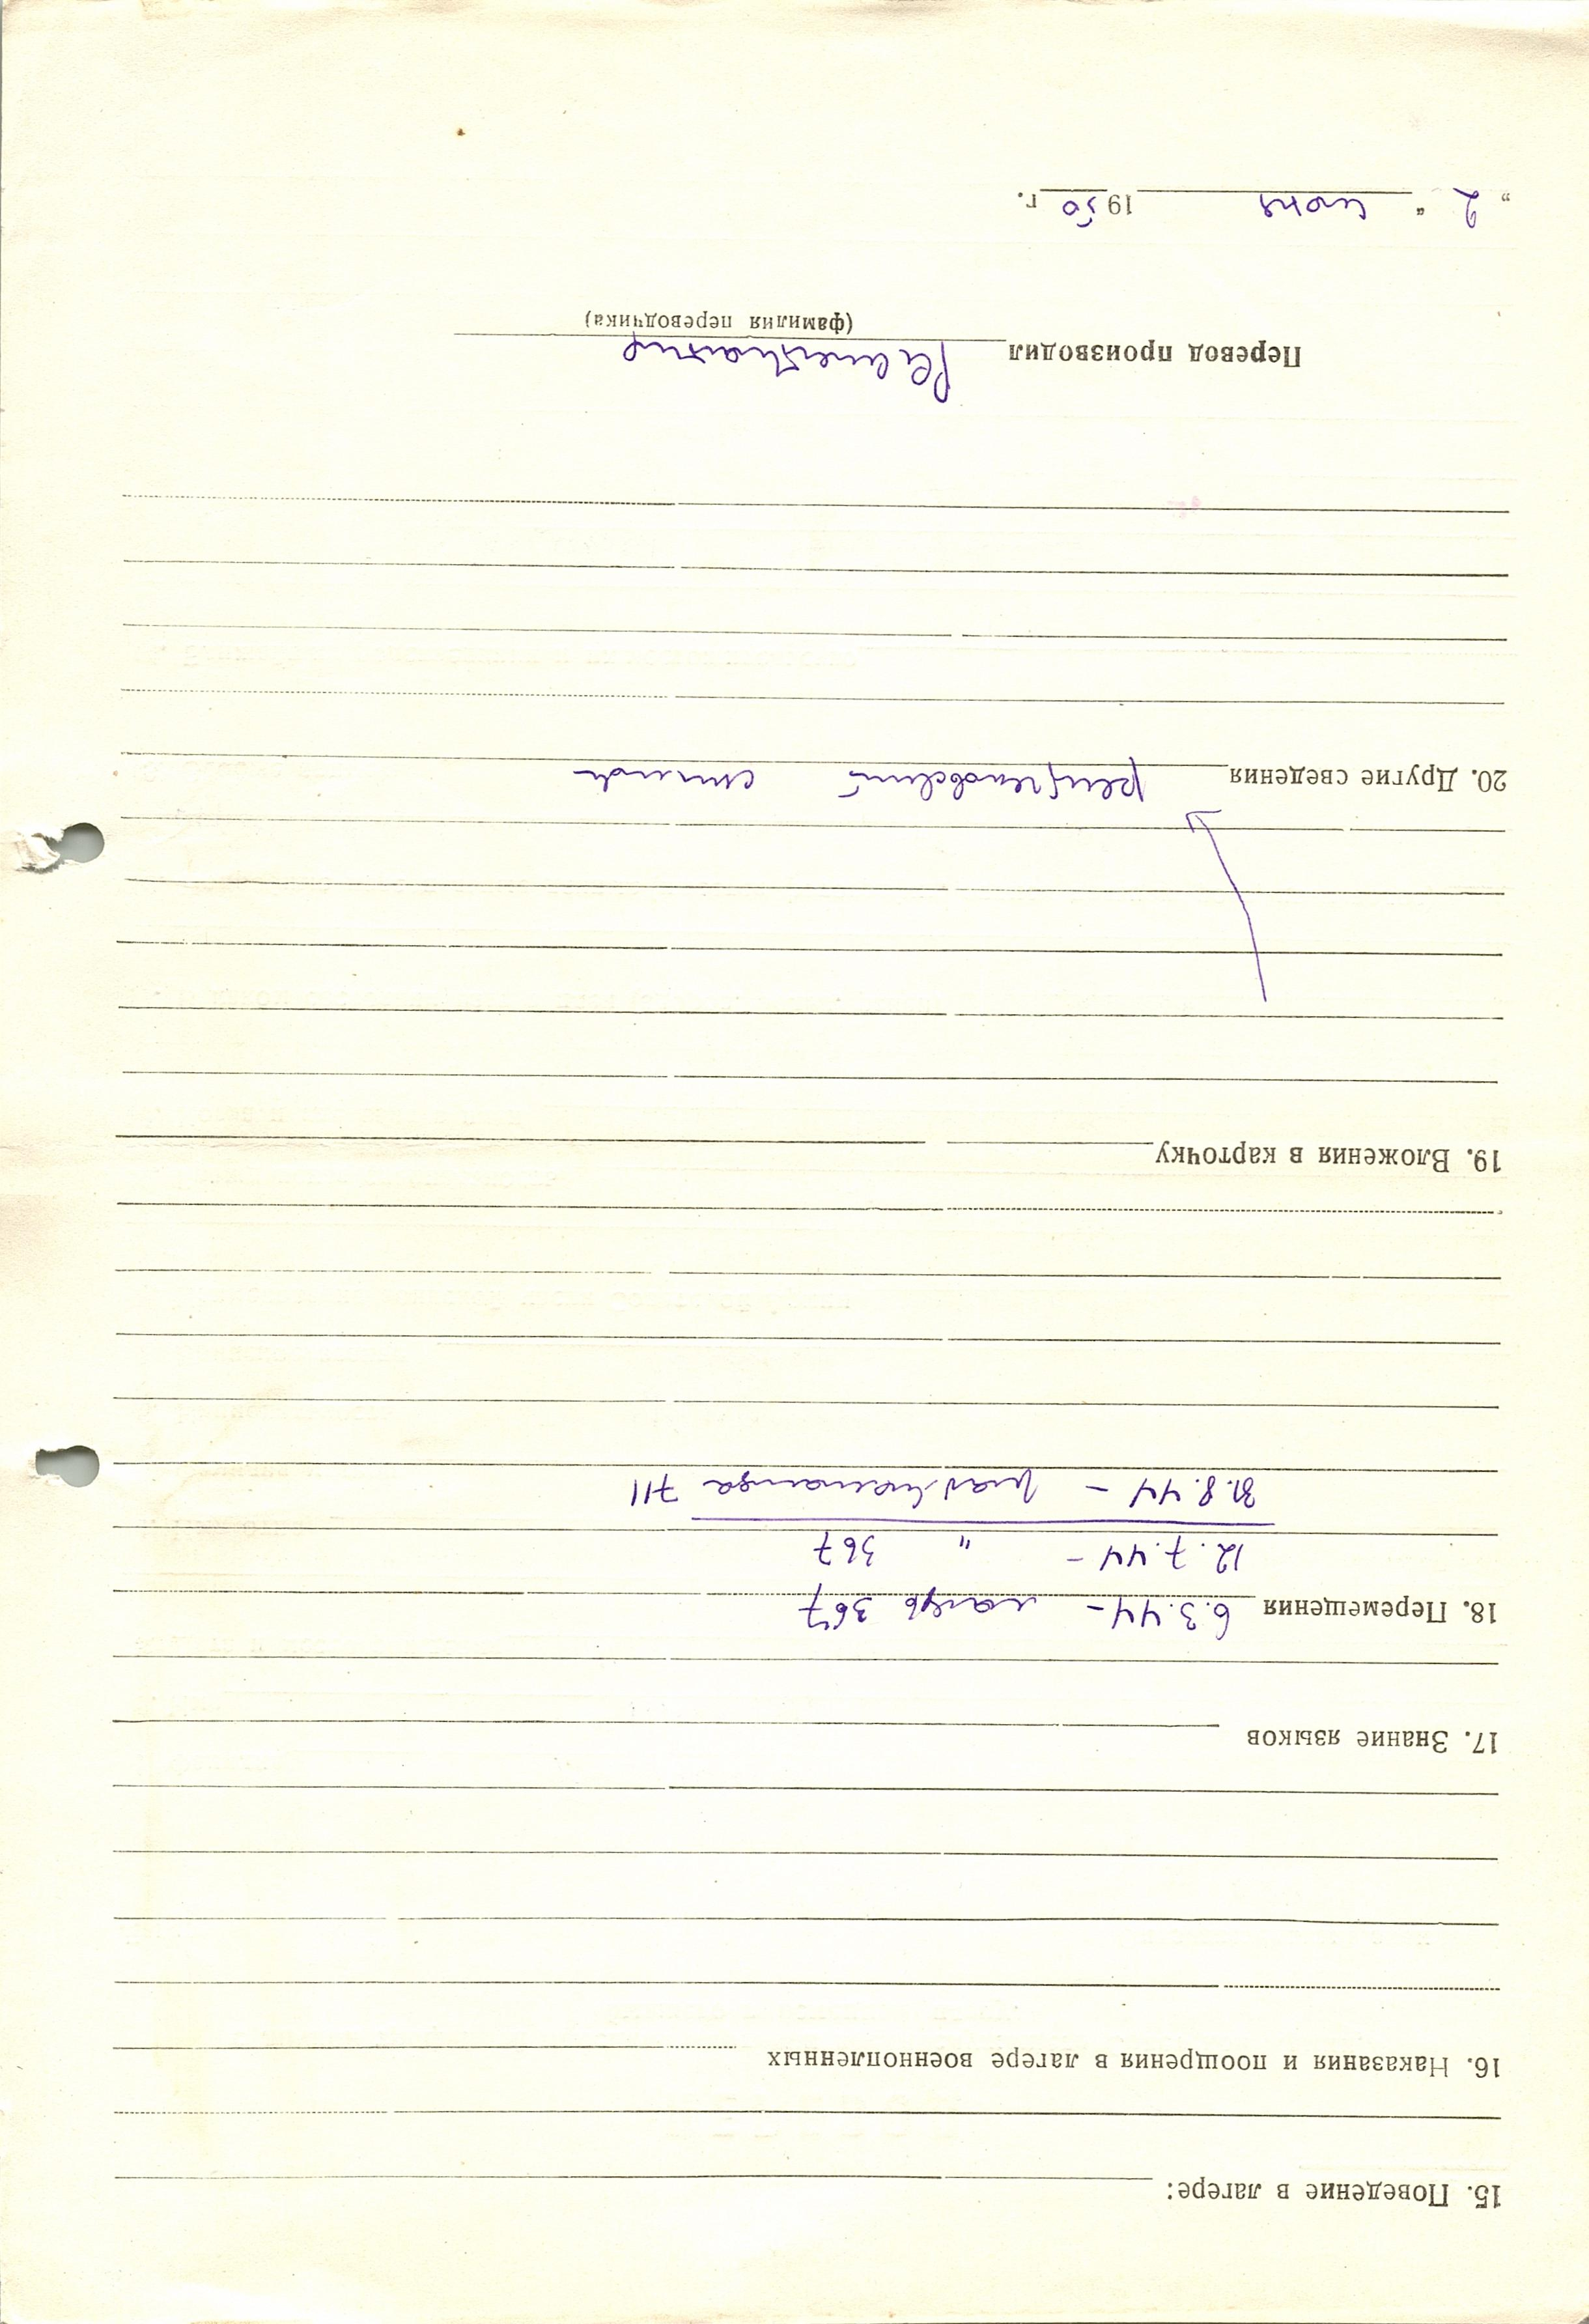 15. Поведение в лагере:
16. Наказания и поощрения в лагере военнопленных
17. Знание языков
18. Перемещения 6.3.44 – лагерь 367
12.7.44 – " 367
31.8.44 – раб/команда 711
19. Вложения в карточку
20. Другие сведения
Перевод производил
(фамилия переводчика)
„ 2 “ июня 1950 г.